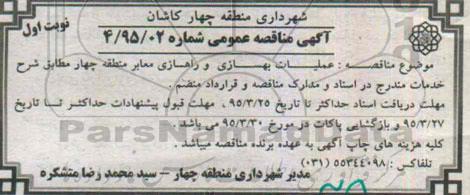 شهرداری منطقه چهار کاشان
نوبت اول
آگهی مناقصه عمومی شماره ۴/۹۵/۰۲
موضوع مناقصه : عملیات بهسازی و راهسازی معابر منطقه چهار مطابق شرح
خدمات مندرج در اسناد و مدارک مناقصه و قرارداد منضم .
مهلت دریافت اسناد حداکثر تا تاریخ ۹۵/۳/۲۵ ، مهلت قبول پیشنهادات حداکثر تا تاریخ
۹۵/۳/۲۷ و بازگشایی پاکات در مورخ ۹۵/۳/۳۰ می باشد .
کلیه هزینه های چاپ آگهی به عهده برنده مناقصه میباشد .
تلفاکس : ۵۵۳۴۴۰۹۸ (۰۳۱)
مدیر شهرداری منطقه چهار – سید محمد رضا متشکره
ParsNamadData